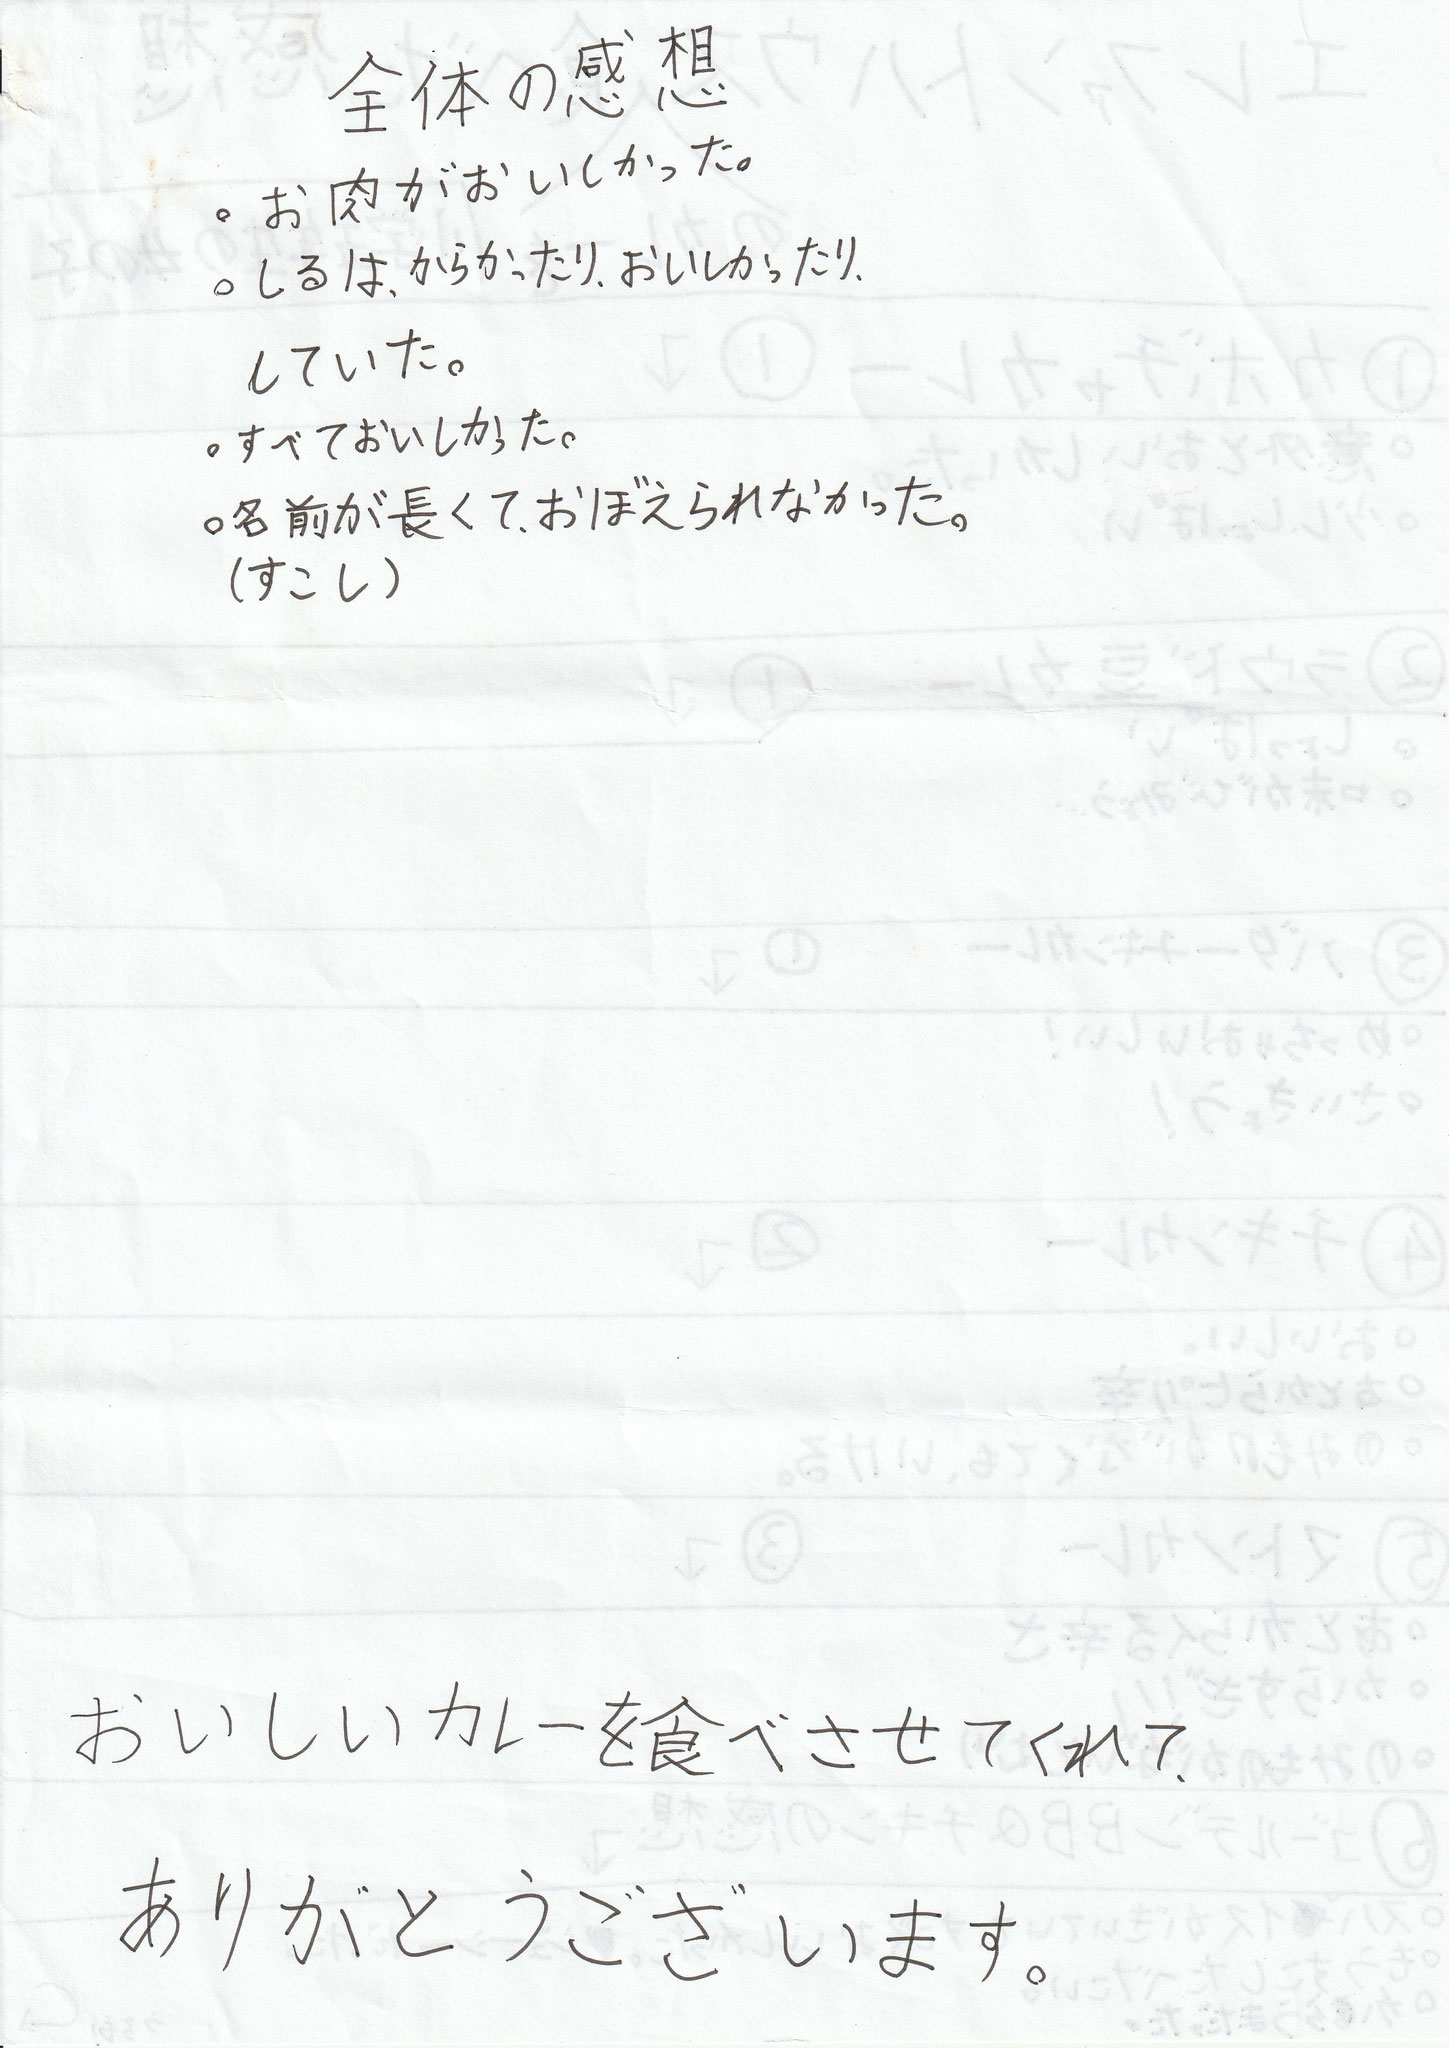 全体の感想
。お肉がおいしかった。
。しるは、からかったり、おいしかったり、
していた。
。すべておいしかった。
。名前が長くて、おぼえられなかった。
(すこし)
おいしいカレーを食べさせてくれて、
ありがとうございます。